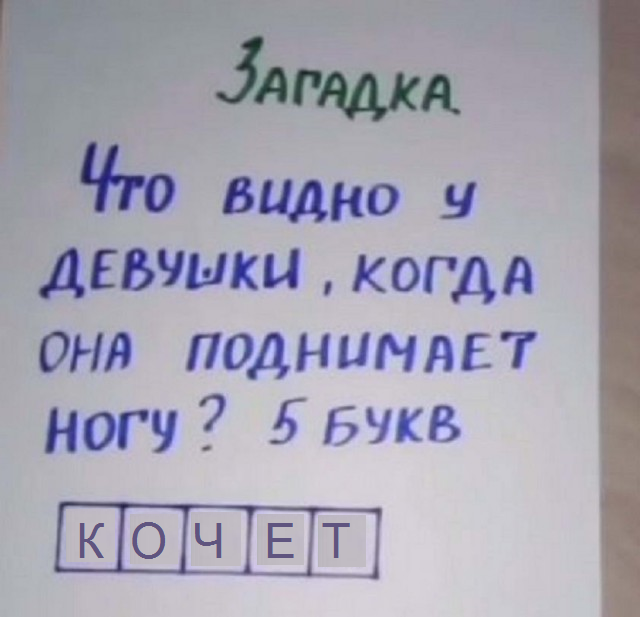 Загадка.
Что видно у
девушки, когда
она поднимает
ногу? 5 букв
КОЧЕТ